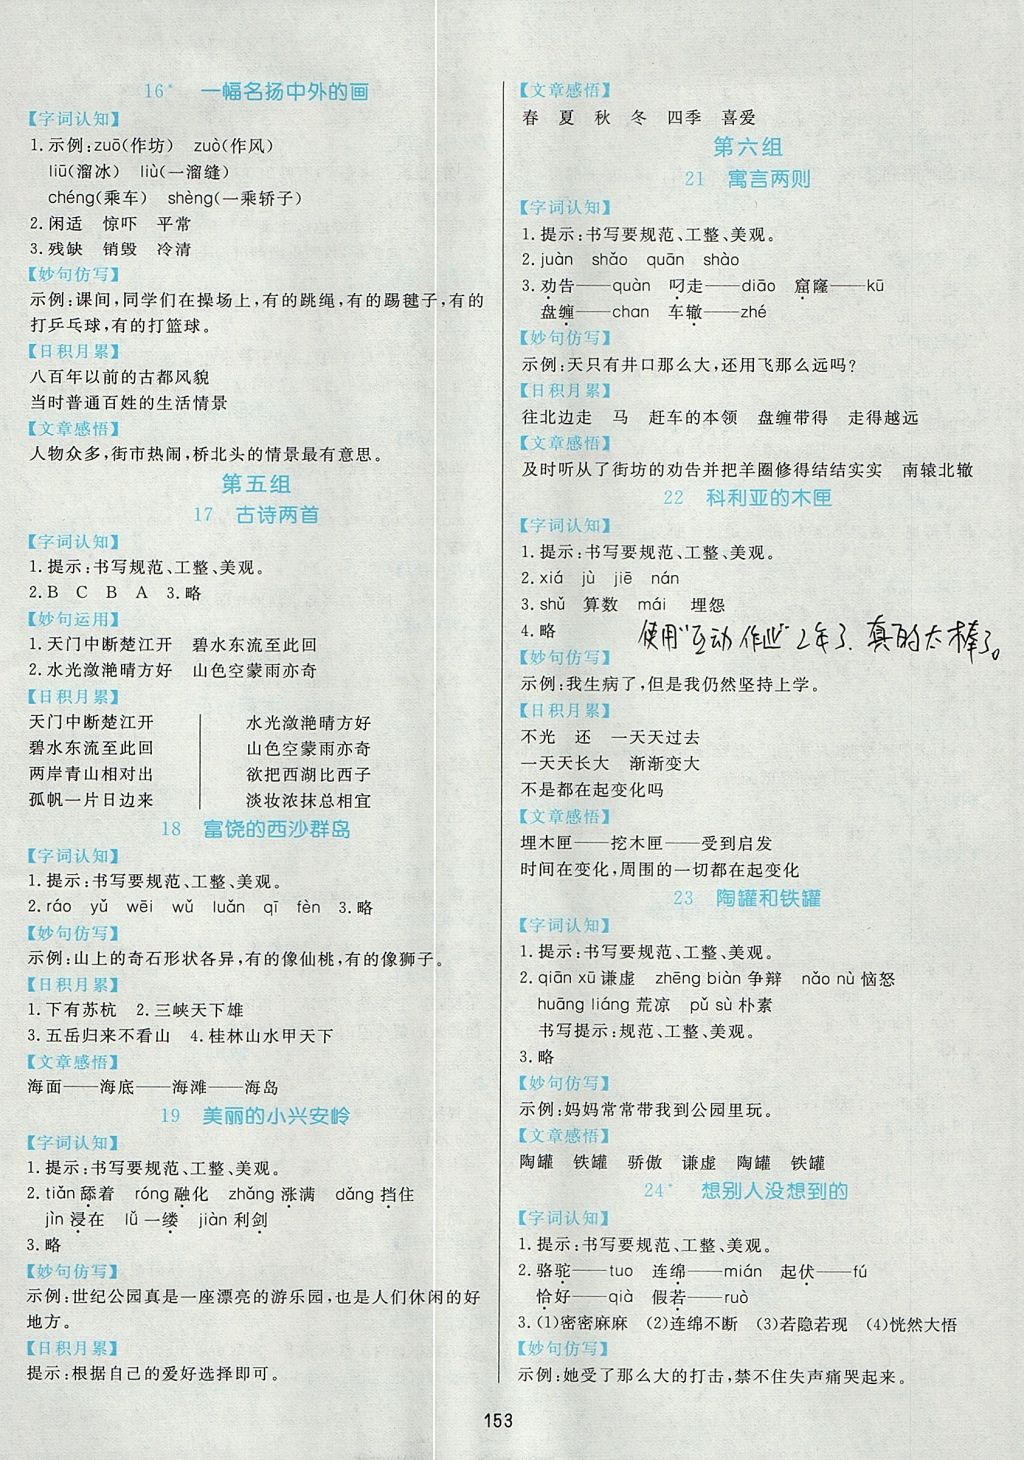 16* 一幅名扬中外的画
【字词认知】
1.示例:zuō(作坊) zuò(作风)
liū(溜冰) liù(一溜缝)
chéng(乘车) shèng(一乘轿子)
2.闲适 惊吓 平常
3.残缺 销毁 冷清
【妙句仿写】
示例:课间,同学们在操场上,有的跳绳,有的踢毽子,有的
打乒乓球,有的打篮球。
【日积月累】
八百年以前的古都风貌
当时普通百姓的生活情景
【文章感悟】
人物众多,街市热闹,桥北头的情景最有意思。
第五组
17 古诗两首
【字词认知】
1.提示:书写要规范、工整、美观。
2.B C B A 3.略
【妙句运用】
1.天门中断楚江开 碧水东流至此回
2.水光潋滟晴方好 山色空蒙雨亦奇
【日积月累】
天门中断楚江开 水光潋滟晴方好
碧水东流至此回 山色空蒙雨亦奇
两岸青山相对出 欲把西湖比西子
孤帆一片日边来 淡妆浓抹总相宜
18 富饶的西沙群岛
【字词认知】
1.提示:书写要规范、工整、美观。
2.ráo yǔ wēi wǔ luǎn qī fèn 3.略
【妙句仿写】
示例:山上的奇石形状各异,有的像仙桃,有的像狮子。
【日积月累】
1.下有苏杭 2.三峡天下雄
3.五岳归来不看山 4.桂林山水甲天下
【文章感悟】
海面——海底——海滩——海岛
19 美丽的小兴安岭
【字词认知】
1.提示:书写要规范、工整、美观。
2.tiǎn舔着 róng融化 zhǎng涨满 dǎng挡住
jìn浸在 lǚ一缕 jiàn利剑
3.略
【妙句仿写】
示例:世纪公园真是一座漂亮的游乐园,也是人们休闲的好
地方。
【日积月累】
提示:根据自己的爱好选择即可。
【文章感悟】
春 夏 秋 冬 四季 喜爱
第六组
21 寓言两则
【字词认知】
1.提示:书写要规范、工整、美观。
2.juàn shǎo quān shào
3.劝告——quàn 叼走——diāo 窟窿——kū
盘缠——chan 车辙——zhé
【妙句仿写】
示例:天只有井口那么大,还用飞那么远吗?
【日积月累】
往北边走 马 赶车的本领 盘缠带得 走得越远
【文章感悟】
及时听从了街坊的劝告并把羊圈修得结结实实 南辕北辙
22 科利亚的木匣
【字词认知】
1.提示:书写要规范、工整、美观。
2.xiá jù jiē nán
3.shǔ 算数 mái 埋怨
4.略
使用"互动作业"2年了.真的太棒了。
【妙句仿写】
示例:我生病了,但是我仍然坚持上学。
【日积月累】
不光 还 一天天过去
一天天长大 渐渐变大
不是都在起变化吗
【文章感悟】
埋木匣——挖木匣——受到启发
时间在变化,周围的一切都在起变化
23 陶罐和铁罐
【字词认知】
1.提示:书写要规范、工整、美观。
2.qiān xū谦虚 zhēng biàn争辩 nǎo nù恼怒
huāng liáng荒凉 pǔ sù朴素
书写提示:规范、工整、美观。
3.略
【妙句仿写】
示例:妈妈常常带我到公园里玩。
【文章感悟】
陶罐 铁罐 骄傲 谦虚 陶罐 铁罐
24* 想别人没想到的
【字词认知】
1.提示:书写要规范、工整、美观。
2.骆驼——tuo 连绵——mián 起伏——fú
恰好——qià 假若——ruò
3.(1)密密麻麻 (2)连绵不断 (3)若隐若现 (4)恍然大悟
【妙句仿写】
示例:她受了那么大的打击,禁不住失声痛哭起来。
153